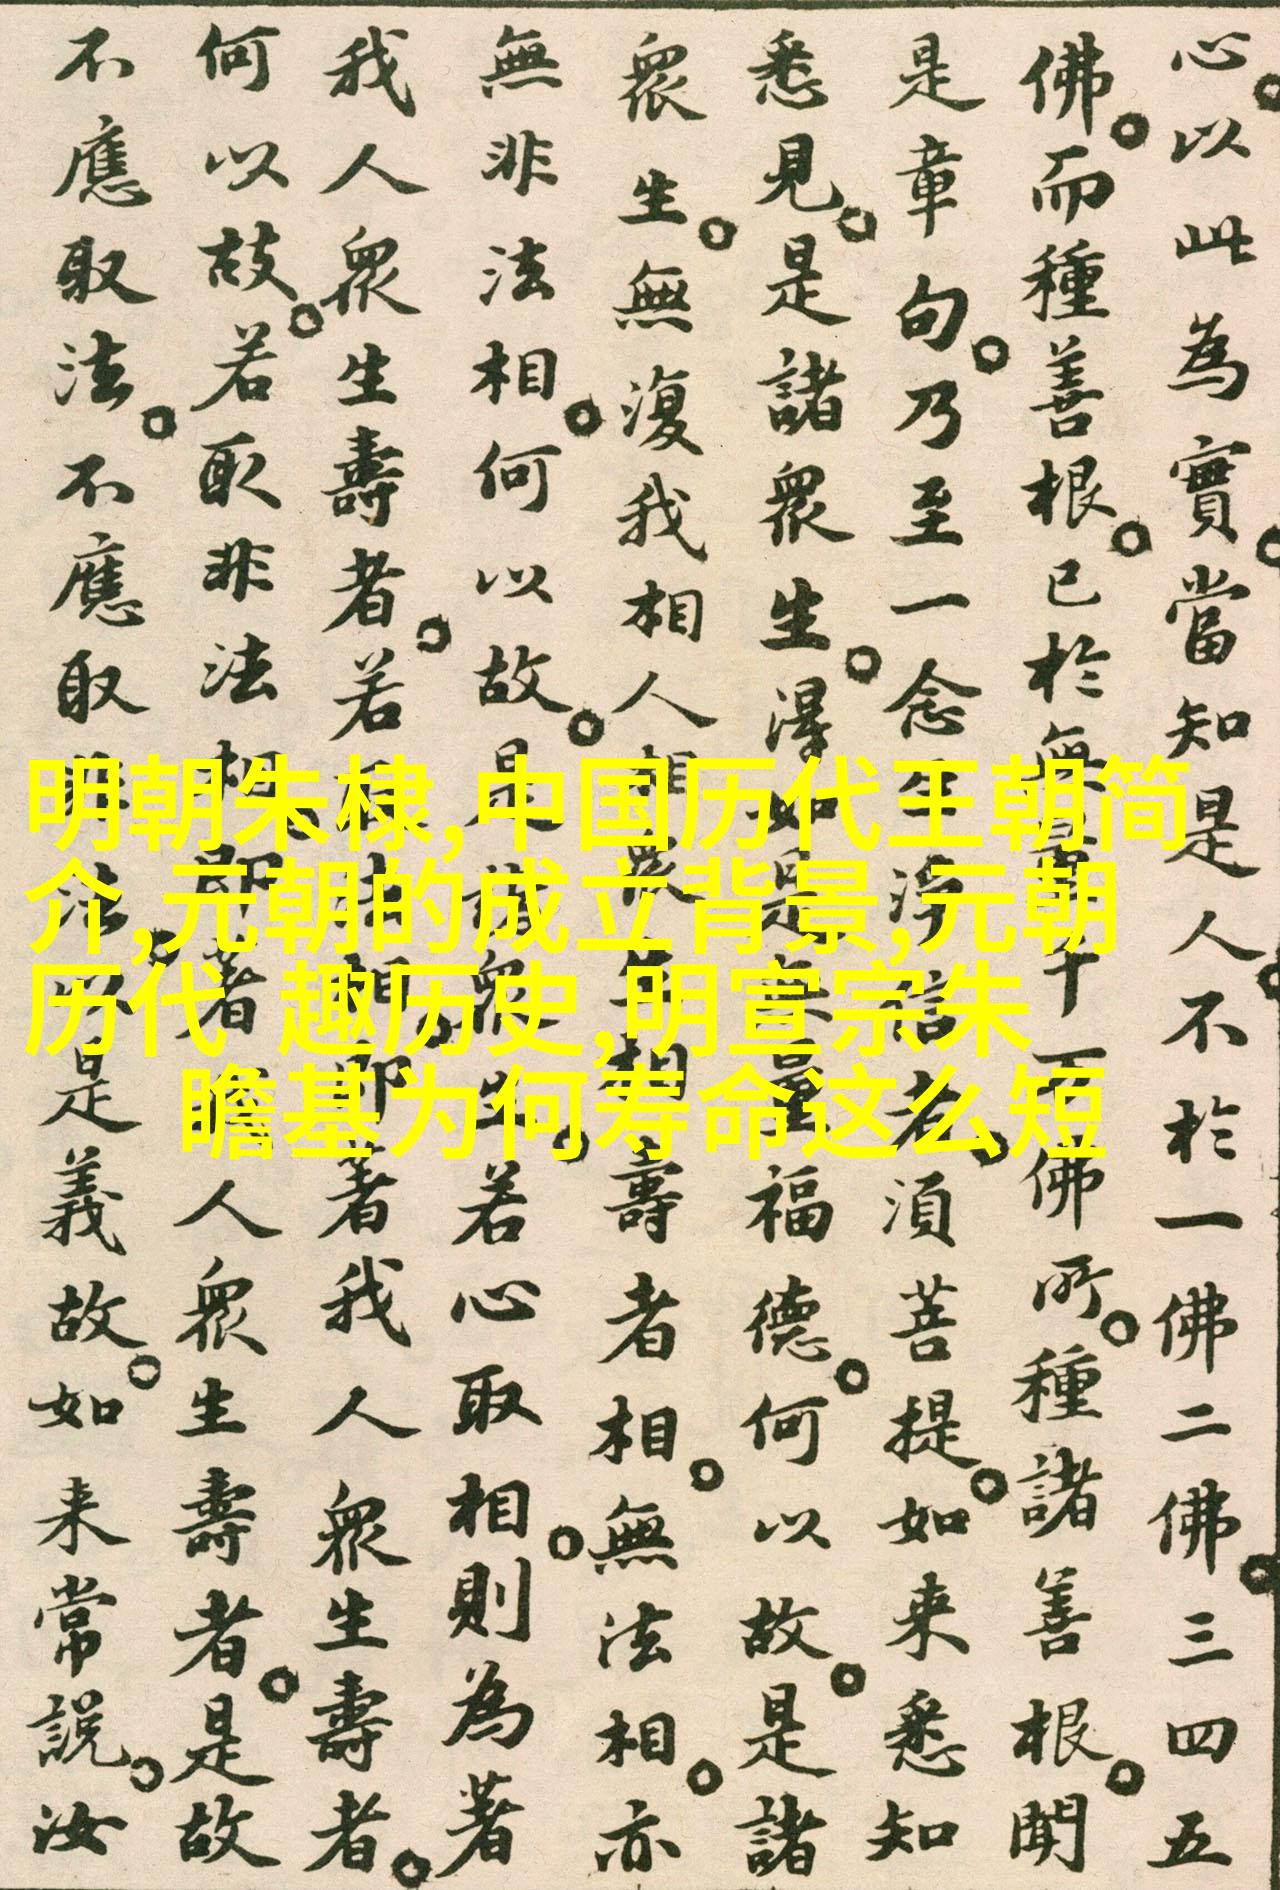 心。以此為實。當知是人。不於一佛二佛。三四五
佛。而種善根。已於無量千万佛所。種諸善根。聞
是章句。乃至一念生淨信者。須菩提。如来悉知
悉見。是諸眾生。得如是無量福德。何以故。是諸
眾生。無復我相人相眾生相壽者相。無法相。亦
無非法相。何以故。是諸眾生。若心取相。則為著
我人眾生壽者。若取法相。即著我人眾生壽者。
何以故。若取非法相。即著我人眾生壽者。是故
不應取法。不應取非法。以是義故。如来常說。汝
明朝朱棣,中国历代王朝简
介,元朝的成立背景,元朝
历代 趣历史,明宣宗朱
瞻基为何寿命这么短